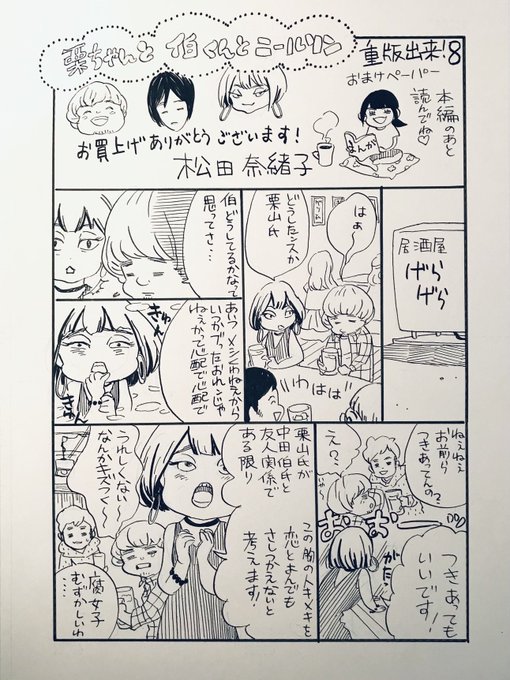 栗ちゃんと 伯くんとニールソン
重版出来!8
おまけペーパー
本編のあと
読んでね♡
まんが
お買上げありがとうございます!
松田奈緒子
居酒屋
げら
げら
はぁ
どうしたンスか
栗山氏
わはは
伯どうしてるかなって
思ってさ…
あいつメシくわねえから
いつかブッたおれんじゃ
ねぇかって心配で心配で
きゅん
きゅん
ねぇねぇ
お前ら
つきあってんの?
え?
おおおー
がたっ
つきあっても
いいです!
栗山氏が
中田伯氏と
友人関係で
ある限り
この胸のトキメキを
恋とよんでも
さしつかえないと
考えます!
うれしくない〜
なんかキズつく〜
腐女子
むずかしいわ